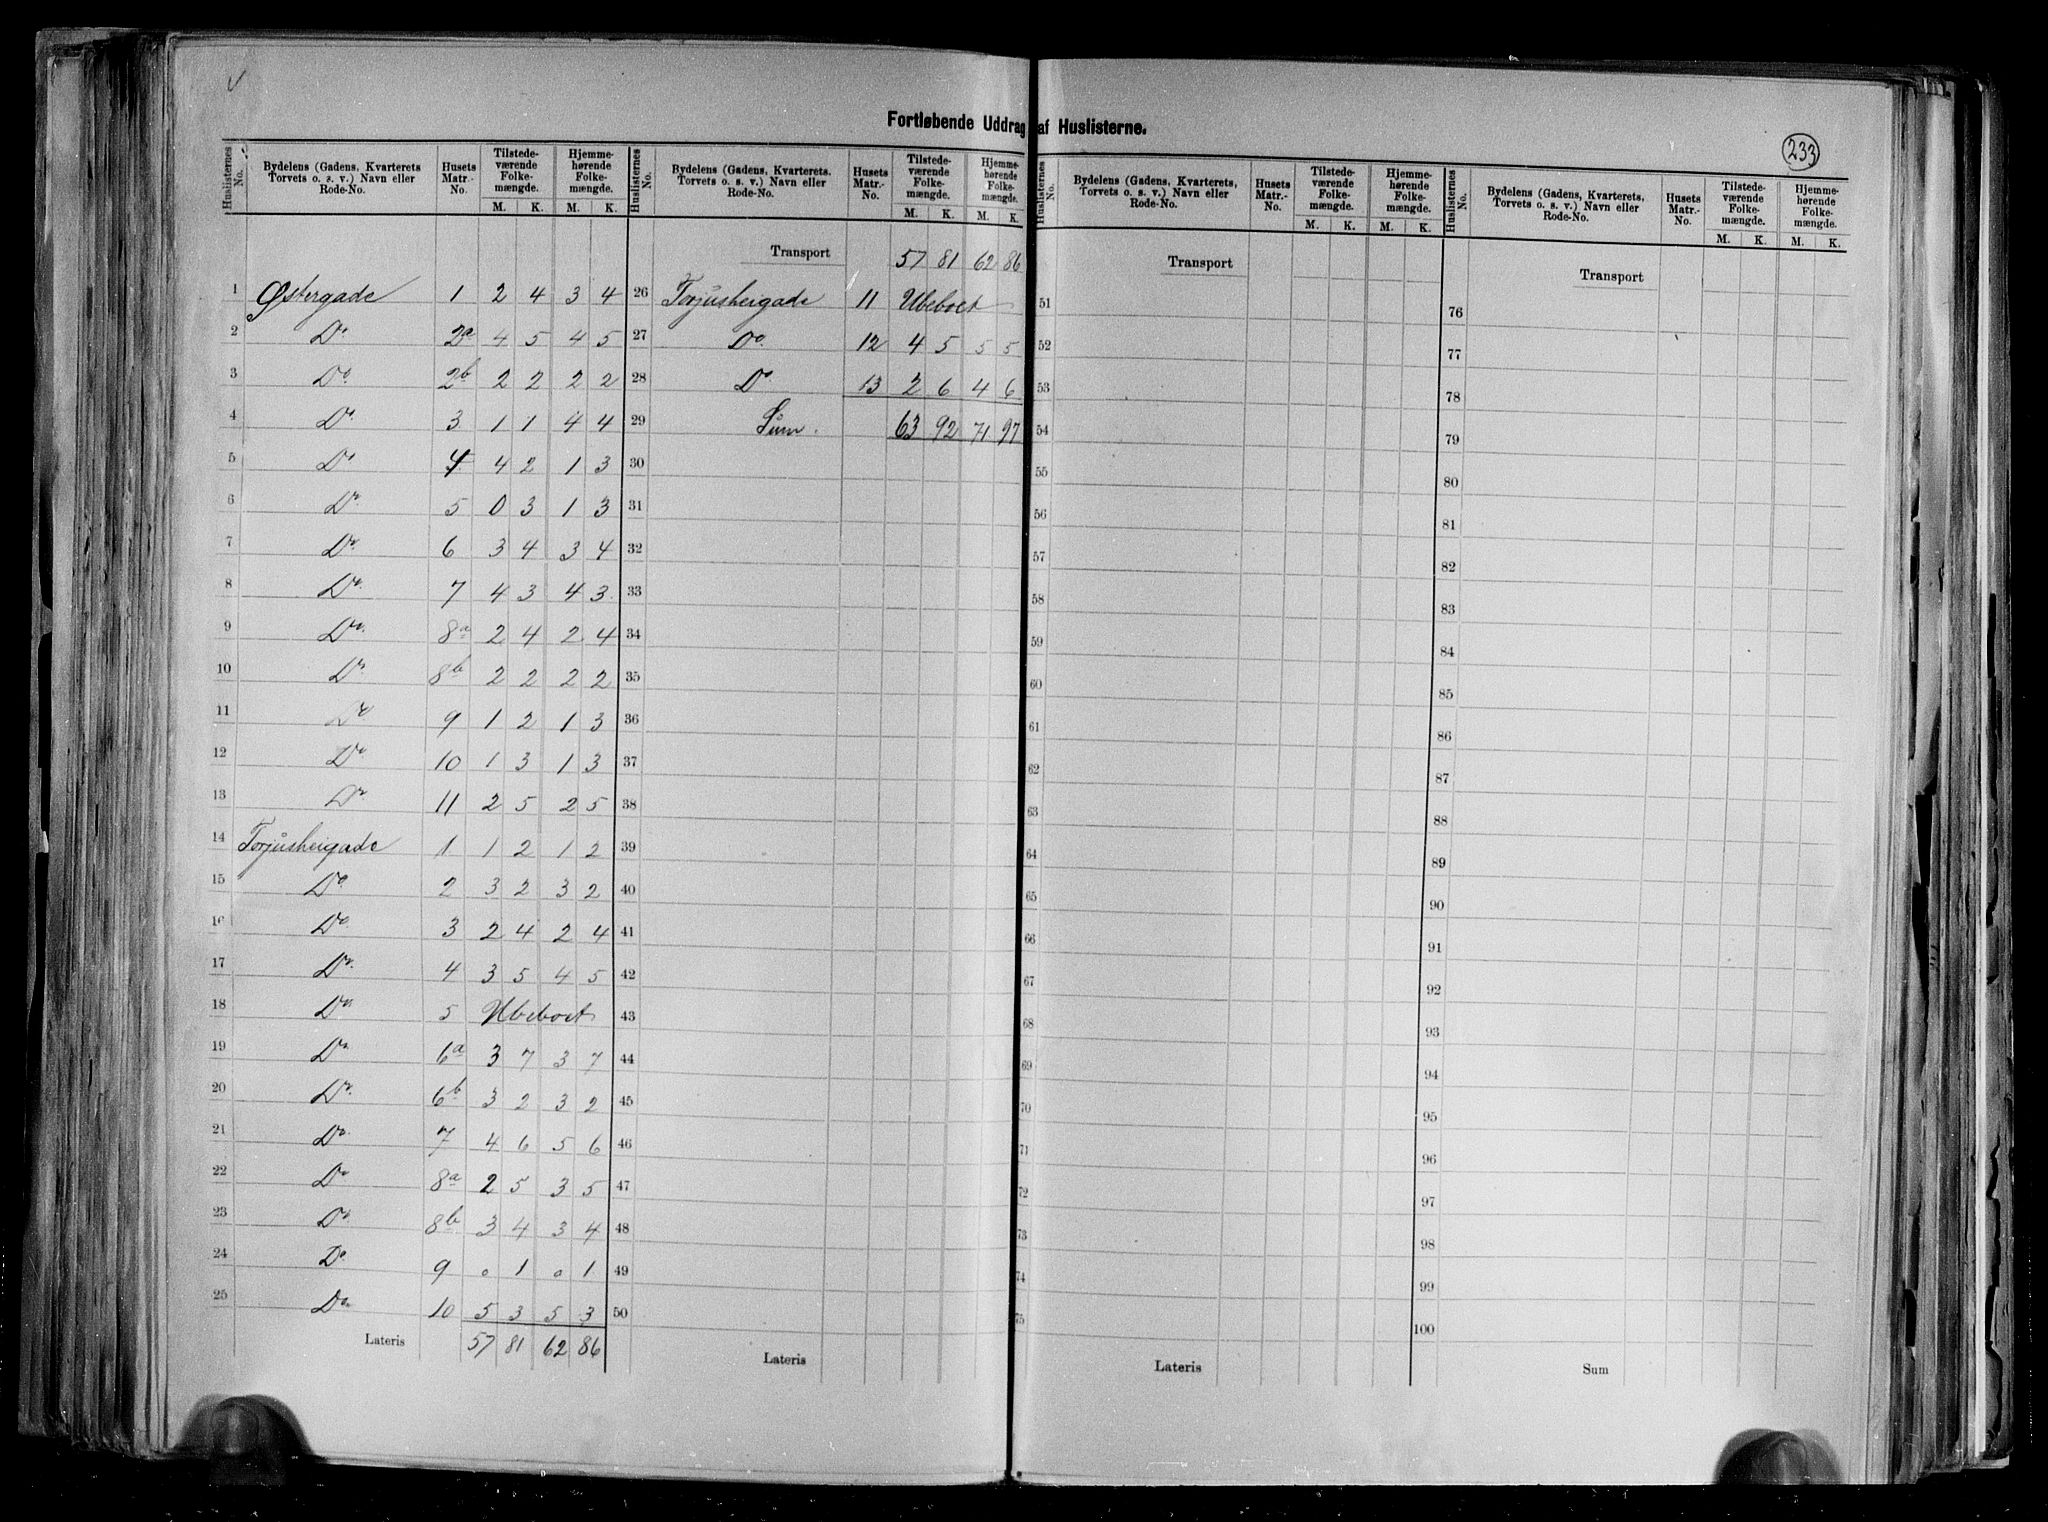 Fortløbende Uddrag af Huslisterne.
233
Huslisternes No. | Bydelens (Gadens, Kvarterets Torvets o. s. v.) Navn eller Rode-No. | Husets Matr.-No. | Tilstede-værende Folke-mængde. M. K. | Hjemme-hørende Folke-mængde. M. K.
1 Østergade 1 2 4 3 4
2 Do. 2a 4 5 4 5
3 Do. 2b 2 2 2 2
4 Do. 3 1 1 4 4
5 Do. 4 4 2 1 3
6 Do. 5 0 3 1 3
7 Do. 6 3 4 3 4
8 Do. 7 4 3 4 3
9 Do. 8a 2 4 2 4
10 Do. 8b 2 2 2 2
11 Do 9 1 2 1 3
12 Do. 10 1 3 1 3
13 Do. 11 2 5 2 5
14 Torjusheigade 1 1 2 1 2
15 Do. 2 3 2 3 2
16 Do. 3 2 4 2 4
17 Do. 4 3 5 4 5
18 Do. 5 Ubeboet
19 Do. 6a 3 7 3 7
20 Do. 6b 3 2 3 2
21 Do. 7 4 6 5 6
22 Do. 8a 2 5 3 5
23 Do. 8b 3 4 3 4
24 Do. 9 0 1 0 1
25 Do. 10 5 3 5 3
Lateris 57 81 62 86
Huslisternes No. | Bydelens (Gadens, Kvarterets, Torvets o. s. v.) Navn eller Rode-No. | Husets Matr.-No. | Tilstede-værende Folke-mængde. M. K. | Hjemme-hørende Folke-mængde. M. K.
Transport 57 81 62 86
26 Torjusheigade 11 Ubeboet
27 Do. 12 4 5 5 5
28 Do. 13 2 6 4 6
29 Sum. 63 92 71 97
30
31
32
33
34
35
36
37
38
39
40
41
42
43
44
45
46
47
48
49
50
Lateris
Huslisternes No. | Bydelens (Gadens, Kvarterets, Torvets o. s. v.) Navn eller Rode-No. | Husets Matr.-No. | Tilstede-værende Folke-mængde. M. K. | Hjemme-hørende Folke-mængde. M. K.
Transport
51
52
53
54
55
56
57
58
59
60
61
62
63
64
65
66
67
68
69
70
71
72
73
74
75
Lateris
Huslisternes No. | Bydelens (Gadens, Kvarterets, Torvets o. s. v.) Navn eller Rode-No. | Husets Matr.-No. | Tilstede-værende Folke-mængde. M. K. | Hjemme-hørende Folke-mængde. M. K.
Transport
76
77
78
79
80
81
82
83
84
85
86
87
88
89
90
91
92
93
94
95
96
97
98
99
100
Sum